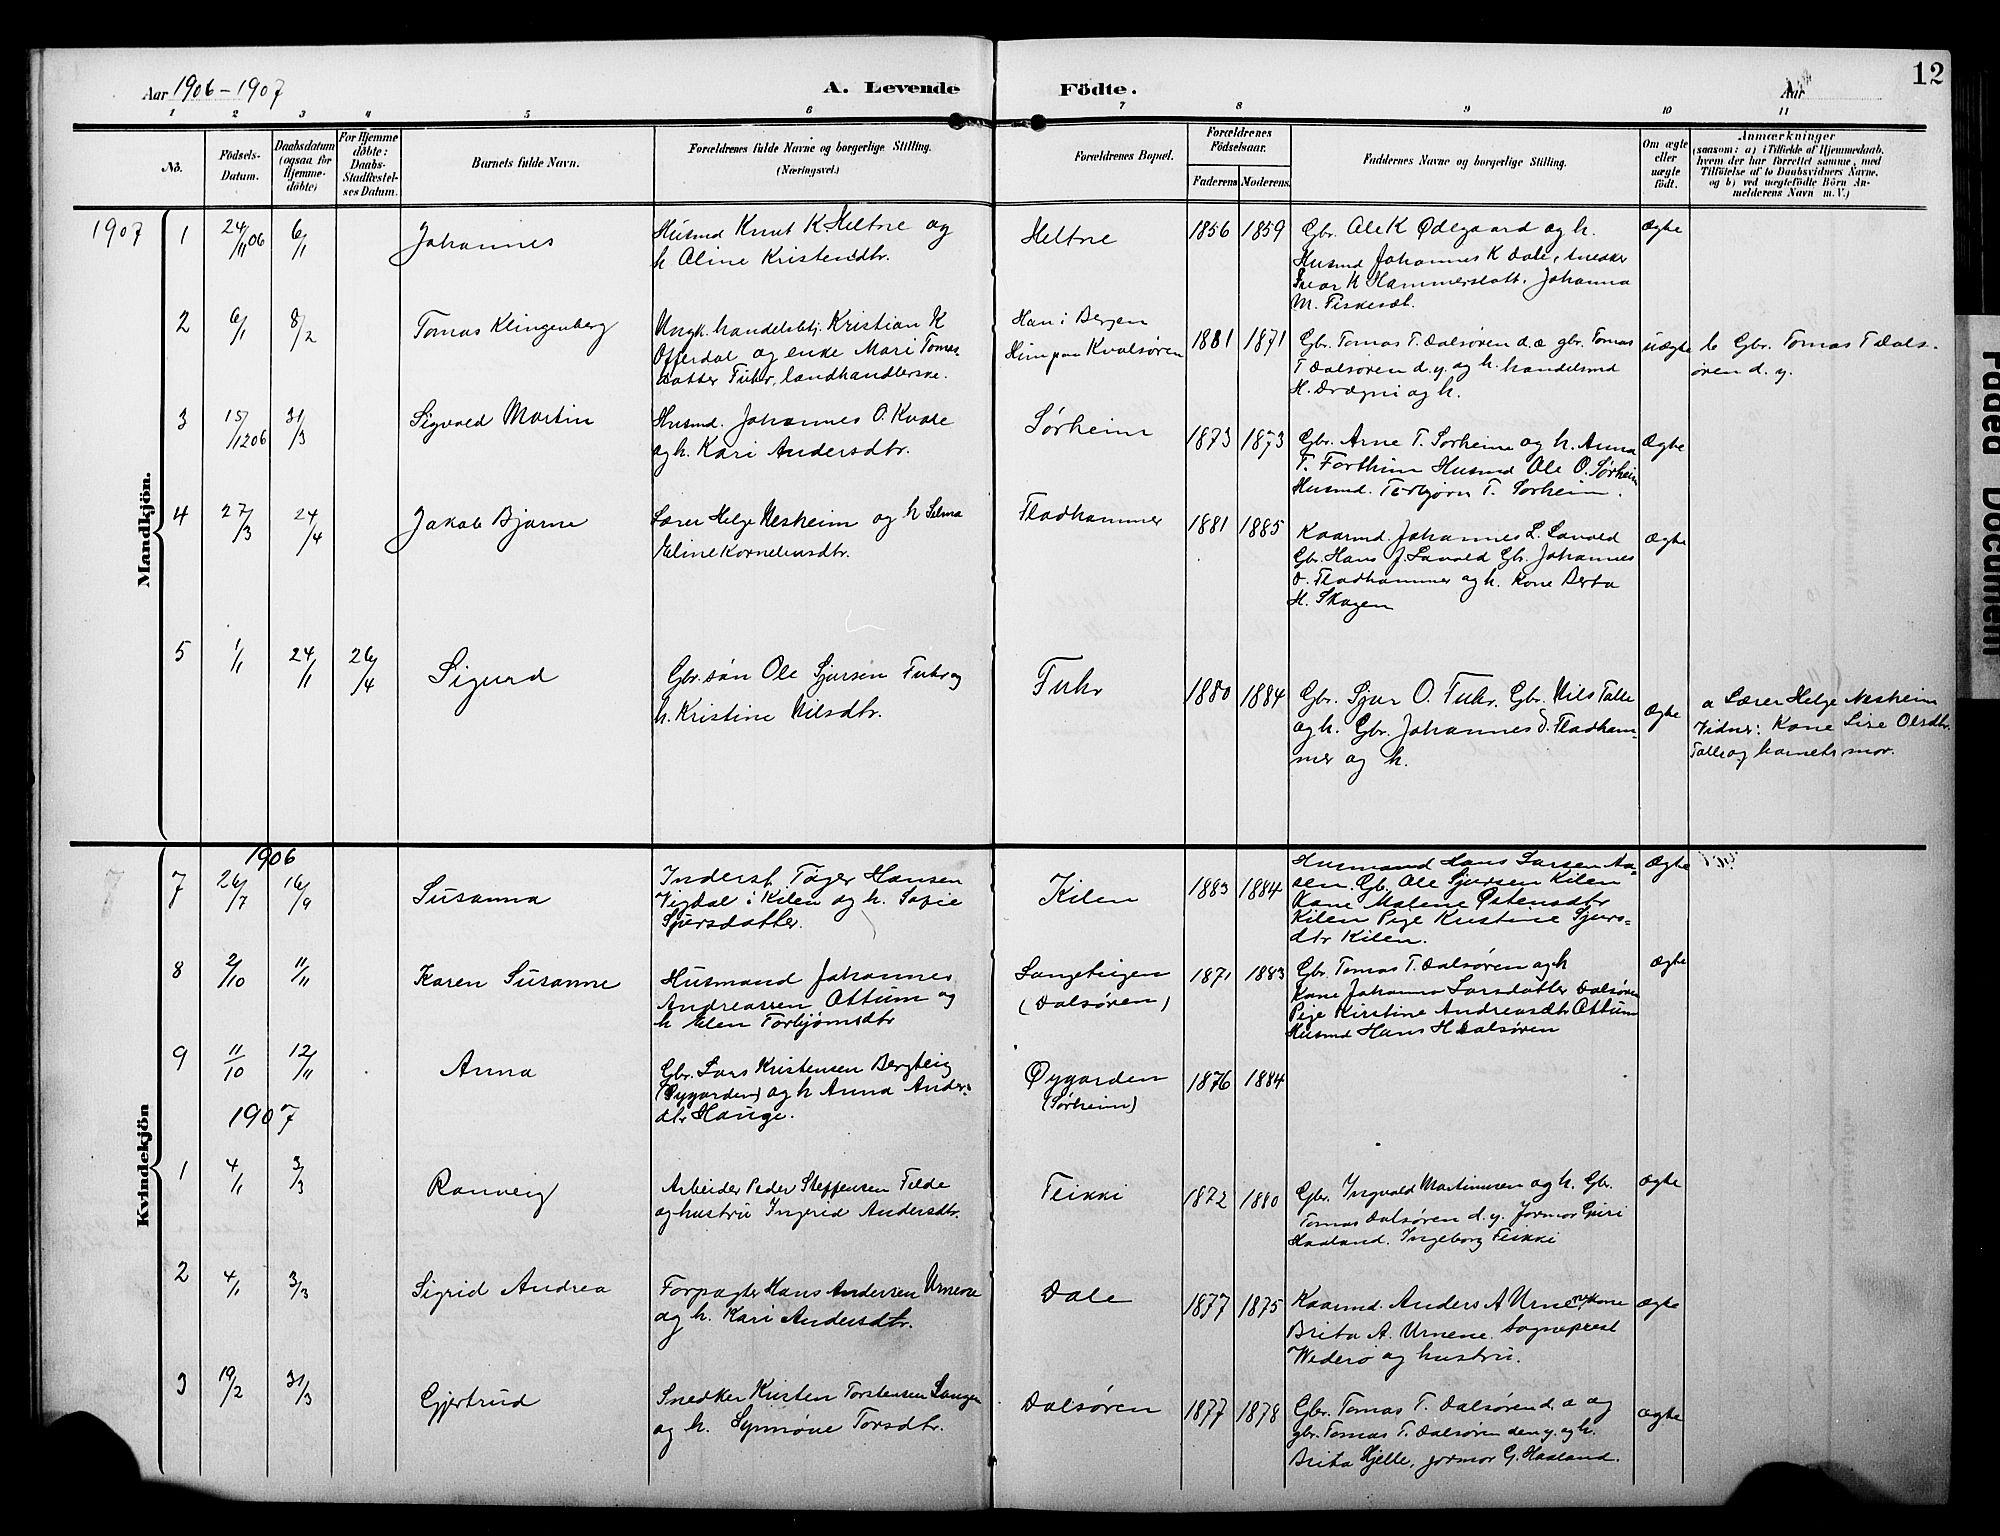 Aar 1906-1907
A. Levende
Födte.
Aar
12
1 2 3 4 5 6 7 8 9 10 11
No.
Födsels-
Datum.
Daabsdatum
(ogsaa for
Hjemme-
döbte)
For Hjemme
döbte:
Daabs-
Stadfæstel-
ses Datum.
Barnets fulde Navn.
Forældrenes fulde Navne og borgerlige Stilling.
(Næringsvei.)
Forældrenes Bopæl.
Forældrenes
Födselsaar.
Faderens
Moderens.
Faddernes Navne og borgerlige Stilling.
Om ægte
eller
uægte
født.
Anmærkninger
(saasom: a) i Tilfælde af Hjemmedaab,
hvem der har forrettet samme, med
Tilföielse af to Daabsvidners Navne,
og b) ved uægtefödte Börn An-
melderens Navn m. V.)
Mandkjön.
1907
1
24/11 06
6/1
Johannes
Husmd Knut K Heltne og
h Oline Kristensdtr.
Heltne
1856
1859
Gbr. Ole K Ødegaard og h.
Husmd Johannes K Dale, snekker
Ivar K Hammerslott, Johanna
M. Fiskeset.
Ægte
2
6/1
8/2
Tomas Klingenberg
Ungk. handelsbetj. Kristian K
Offerdal og enke Mari Tomas-
datter Fuhr, landhandlerske.
Han i Bergen
Hun paa Kvalsøren
1881
1871
Gbr. Tomas T. Dalsøren d.æ gbr. Tomas
T Dalsøren d.y. og h. handelsmd
H. Drægni og h.
uægte
b Gbr. Tomas T Dals-
øren d. y.
3
15/12 06
31/3
Sigvald Martin
Husmd. Johannes O. Kvale
og h. Kari Andersdtr.
Sørheim
1873
1873
Gbr. Arne T. Sørheim og h. Anna
T. Fortheim Husmd Ole O. Sørheim
Husmd. Torbjørn T. Sørheim.
Ægte
4
27/3
24/4
Jakob Bjarne
Lærer Helge Nesheim og h Selma
Eline Korneliusdtr.
Fladhammer
1881
1885
Kaarmd. Johannes L. Lavold
Gbr. Hans J. Lavold Gbr. Johannes
O. Fladhammer og h. Kone Berta
H. Skagen
Ægte
5
1/1
24/11
26/4
Sigurd
Gbr.søn Ole Sjursen Fuhr og
h. Kristine Nilsdtr.
Fuhr
1880
1884
Gbr. Sjur O. Fuhr, Gbr. Nils Talle
og h. Gbr. Johannes O. Fladham-
mer og h.
Ægte
a Lærer Helge Nesheim
Vidner: Kone Lise Olsdtr.
Talle og barnets mor.
Kvindekjön
1906
7
26/7
16/9
Susanna
Inderst Tøger Hansen
Vigdal i Kilen og h. Sofie
Sjursdatter.
Kilen
1883
1884
Husmand Hans Larsen Aa-
sen. Gb. Ole Sjursen Kilen
Kone Malene Østensdtr
Kilen Pige Kristine Sjurs-
dtr Kilen.
Ægte
8
2/10
11/11
Karen Susanne
Husmand Johannes
Andreassen Ottum og
h Elen Torbjørnsdtr
Langeteigen
(Dalsøren)
1871
1883
Gbr. Tomas T. Dalsøren og h
Kone Johanna Larsdatter Dalsøren
Pige Kirstine Andreasdtr Ottum
Husmd Hans H Dalsøren
Ægte
9
11/10
12/11
Anna
Gbr. Lars Kristensen Bergteig
(Øygarden) og h Anna Anders-
dtr Hauge.
Øygarden
(Sørheim)
1876
1884
1907
1
4/1
3/3
Ranveig
Arbeider Peder Steffensen Felde
og hustru Ingerid Andersdtr.
Feikki
1872
1880
Gbr. Ingvald Martinusen og h. Gbr.
Tomas Dalsøren d. y. Jormor Guri
Haaland. Ingeborg Feikki
Ægte
2
4/1
3/3
Sigrid Andrea
Forpagter Hans Andersen Urnene
og h. Kari Andersdtr.
Dale
1877
1875
Kaarmd. Anders A Urnene, kone
Brita A. Urnene. Sogneprest
Wederø og hustru.
Ægte
3
19/2
31/3
Gjertrud
Snedker Kristen Torstensen Langen
og h. Synnøve Torsdtr.
Dalsøren
1877
1878
Gbr. Tomas T. Dalsøren d. æ og
gbr. Tomas T. Dalsøren den y. og h.
Brita Hjelle, jormor G. Haaland.
Ægte
Faded Document